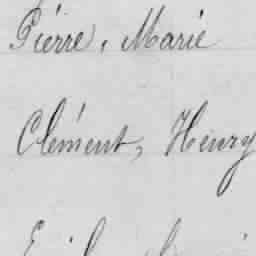 Pierre, Marie
Clément, Henry